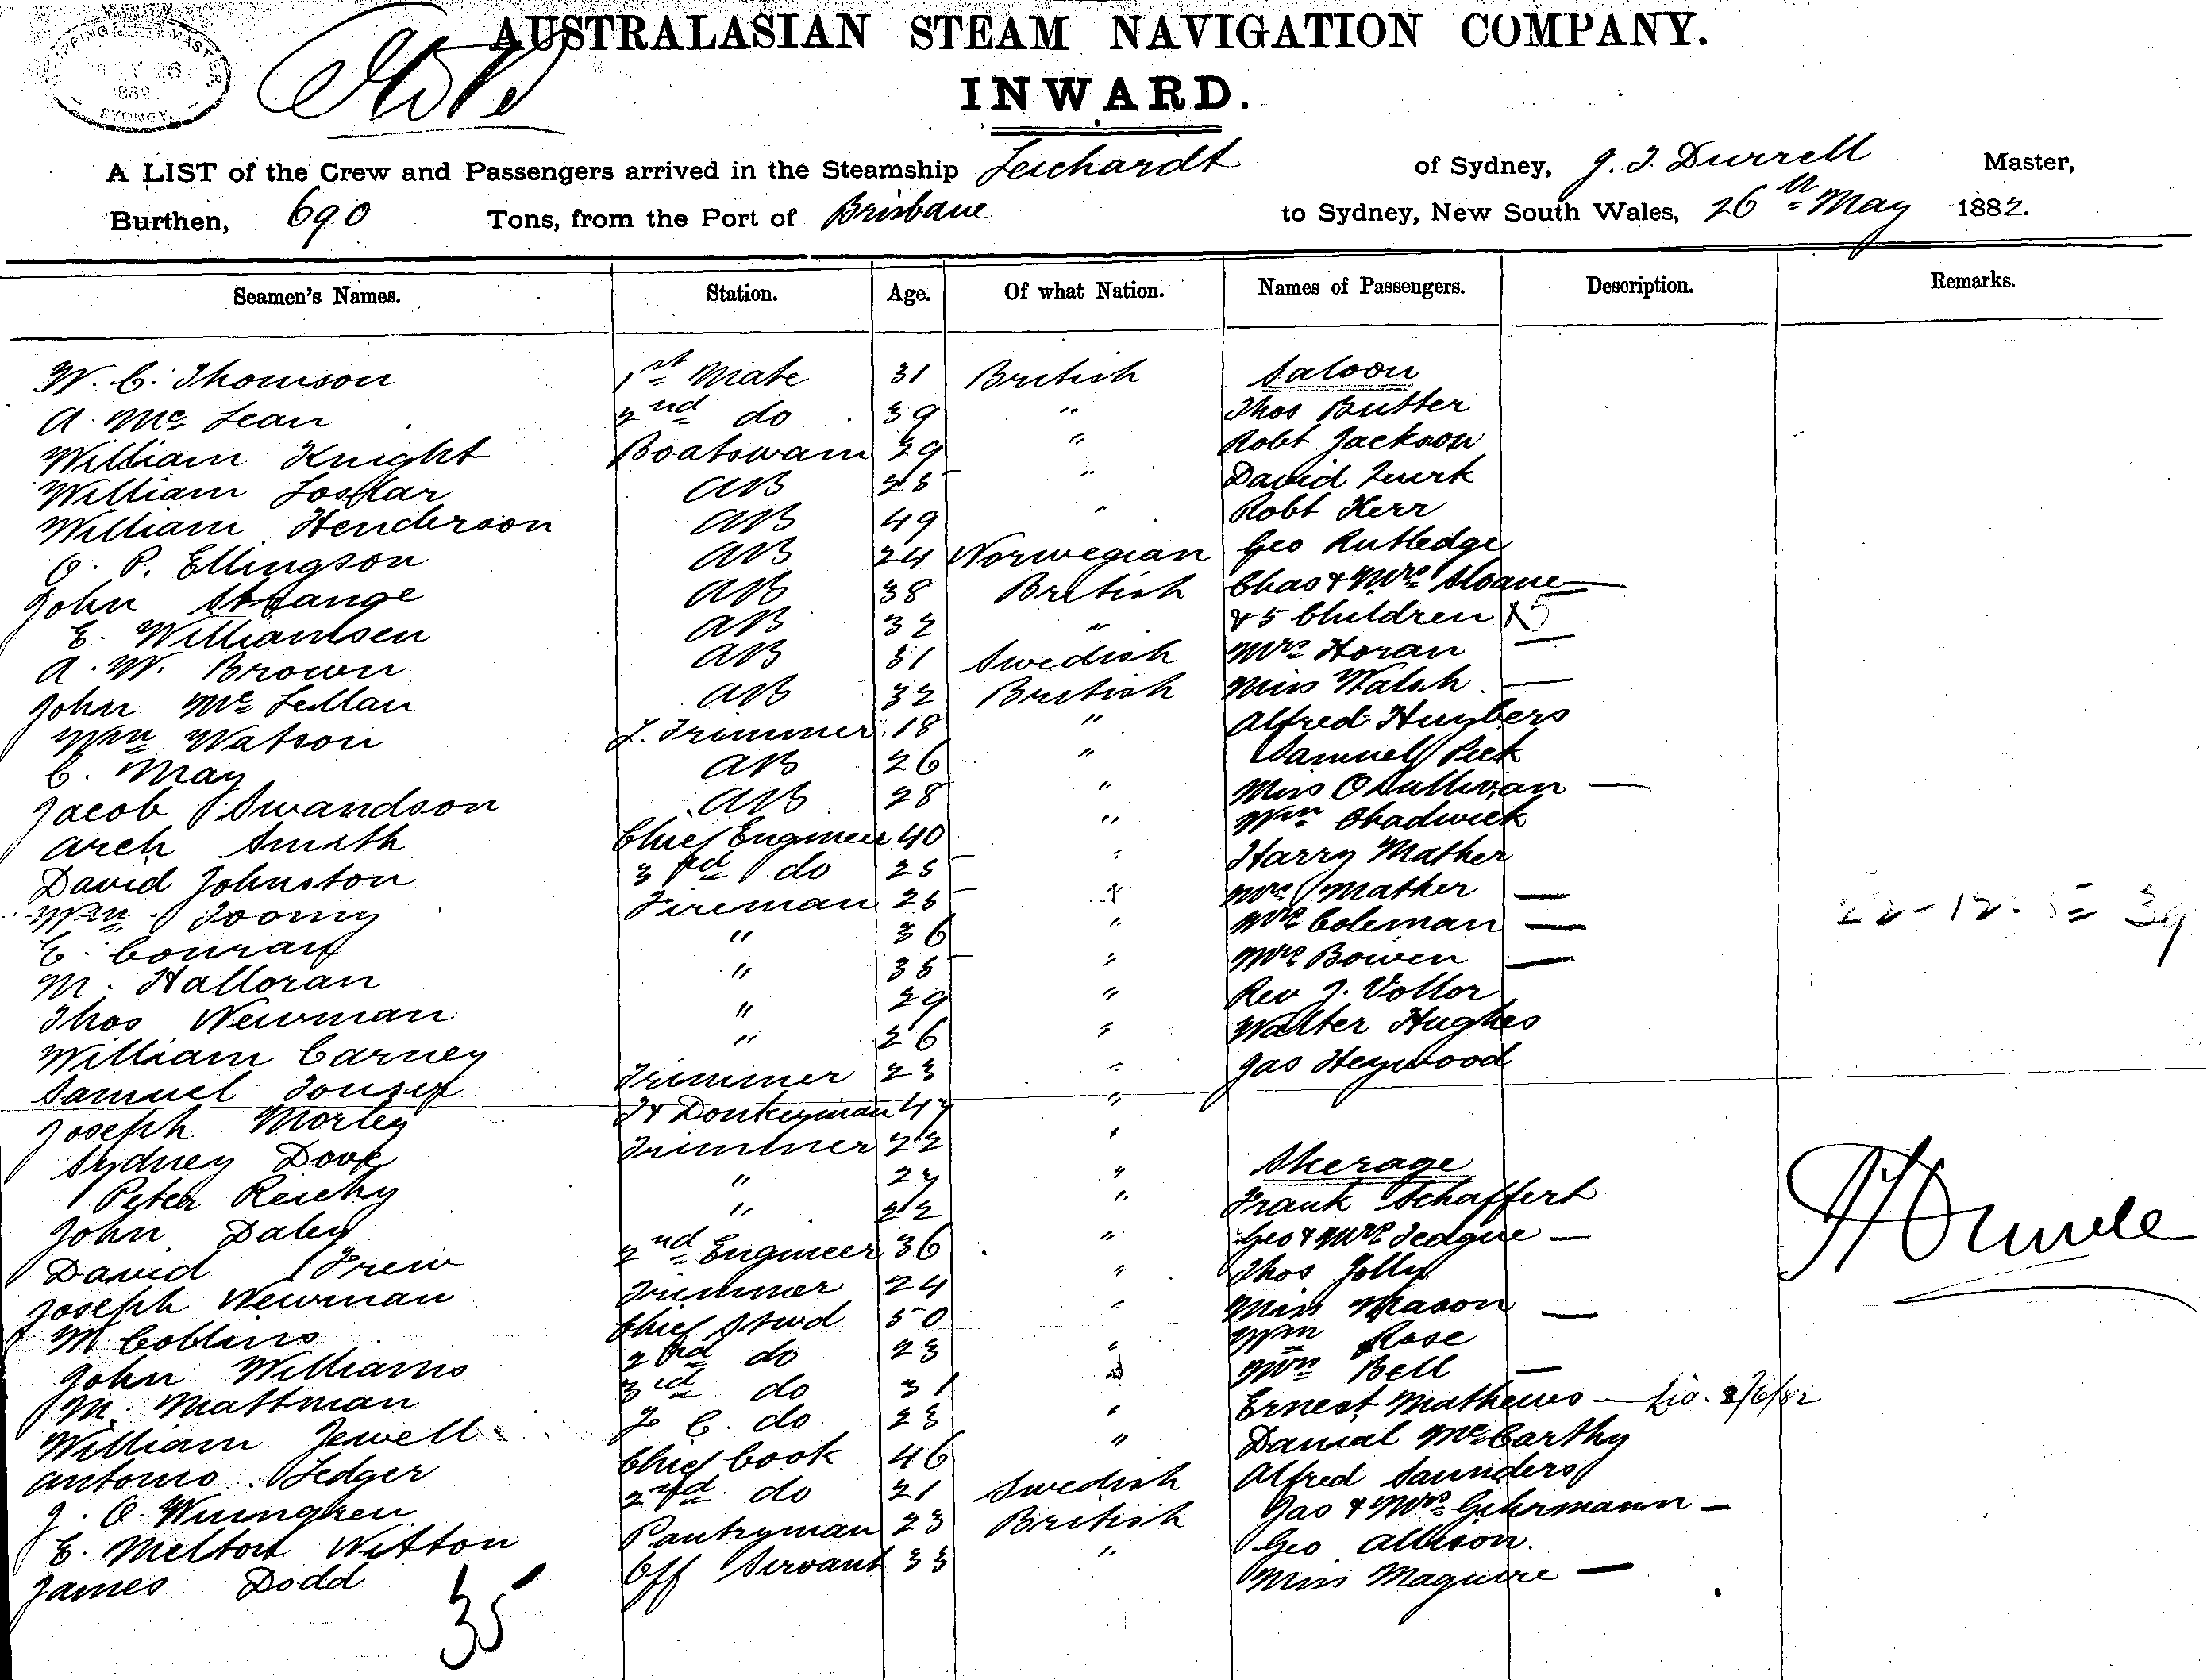 SHIPPING MASTER
MAY 26
1882
SYDNEY
AUSTRALASIAN STEAM NAVIGATION COMPANY.
INWARD.
A LIST of the Crew and Passengers arrived in the Steamship Leichardt of Sydney, J. J. Durrell Master,
Burthen, 690 Tons, from the Port of Brisbane to Sydney, New South Wales, 26th May 1882.
Seamen's Names. Station. Age. Of what Nation. Names of Passengers. Description. Remarks.
W. C. Thomson 1st Mate 31 British Saloon
A. Mc Lean 2nd do 39 " Thos Butter
William Knight Boatswain 29 " Robt Jackson
William AB 25 " David Quirk
William Henderson AB 49 " Robt Kerr
O. P. Ellingson AB 24 Norwegian Geo Rutledge
John Strange AB 38 British Chas & Mrs Sloane —
E. Williamsen AB 32 " & 5 Children X5
A. W. Brown AB 31 Swedish Mrs Horan —
John Mc Lellan AB 32 British Miss Walsh —
Wm Watson L. Trimmer 18 " Alfred Huybers
C. May AB 26 " Samuel Peek
Jacob Swandson AB 28 " Miss O Sullivan —
Arch Smith Chief Engineer 40 " Wm Chadwick
David Johnston 3rd do 25 " Harry Mather
Wm Toomy Fireman 25 " Mrs Mather —
E. Conran " 36 " Mrs Coleman — 22-12.5= 39
M. Halloran " 35 " Mrs Bowen —
Thos Newman " 29 " Rev J. Vollor
William Carney " 26 " Walter Hughes
Samuel Trimmer 23 " Jas Heywood
Joseph Morley Donkeyman 47 "
Sydney Dove Trimmer 22 " Steerage
Peter " 27 " Frank Schaffert
John Daley " 22 " Geo & Mrs Teague —
David Frew 2nd Engineer 36 " Thos Jolly
Joseph Newman Trimmer 24 " Miss Mason —
M Collins Chief Stwd 50 " Wm Rose
John Williams 2nd do 23 " Mrs Bell —
M. Mattman 3rd do 31 " Ernest Mathews — 2/6/82
William Jewell F. C. do 23 " Danial McCarthy
Antonio Ledger Chief Cook 46 " Alfred Saunders
J. O. Winngren 2nd do 21 Swedish Jas & Mrs Gehrmann —
E. Melton Witton Pantryman 23 British Geo Allison.
James Dodd Off Servant 33 " Miss Maguire —
35